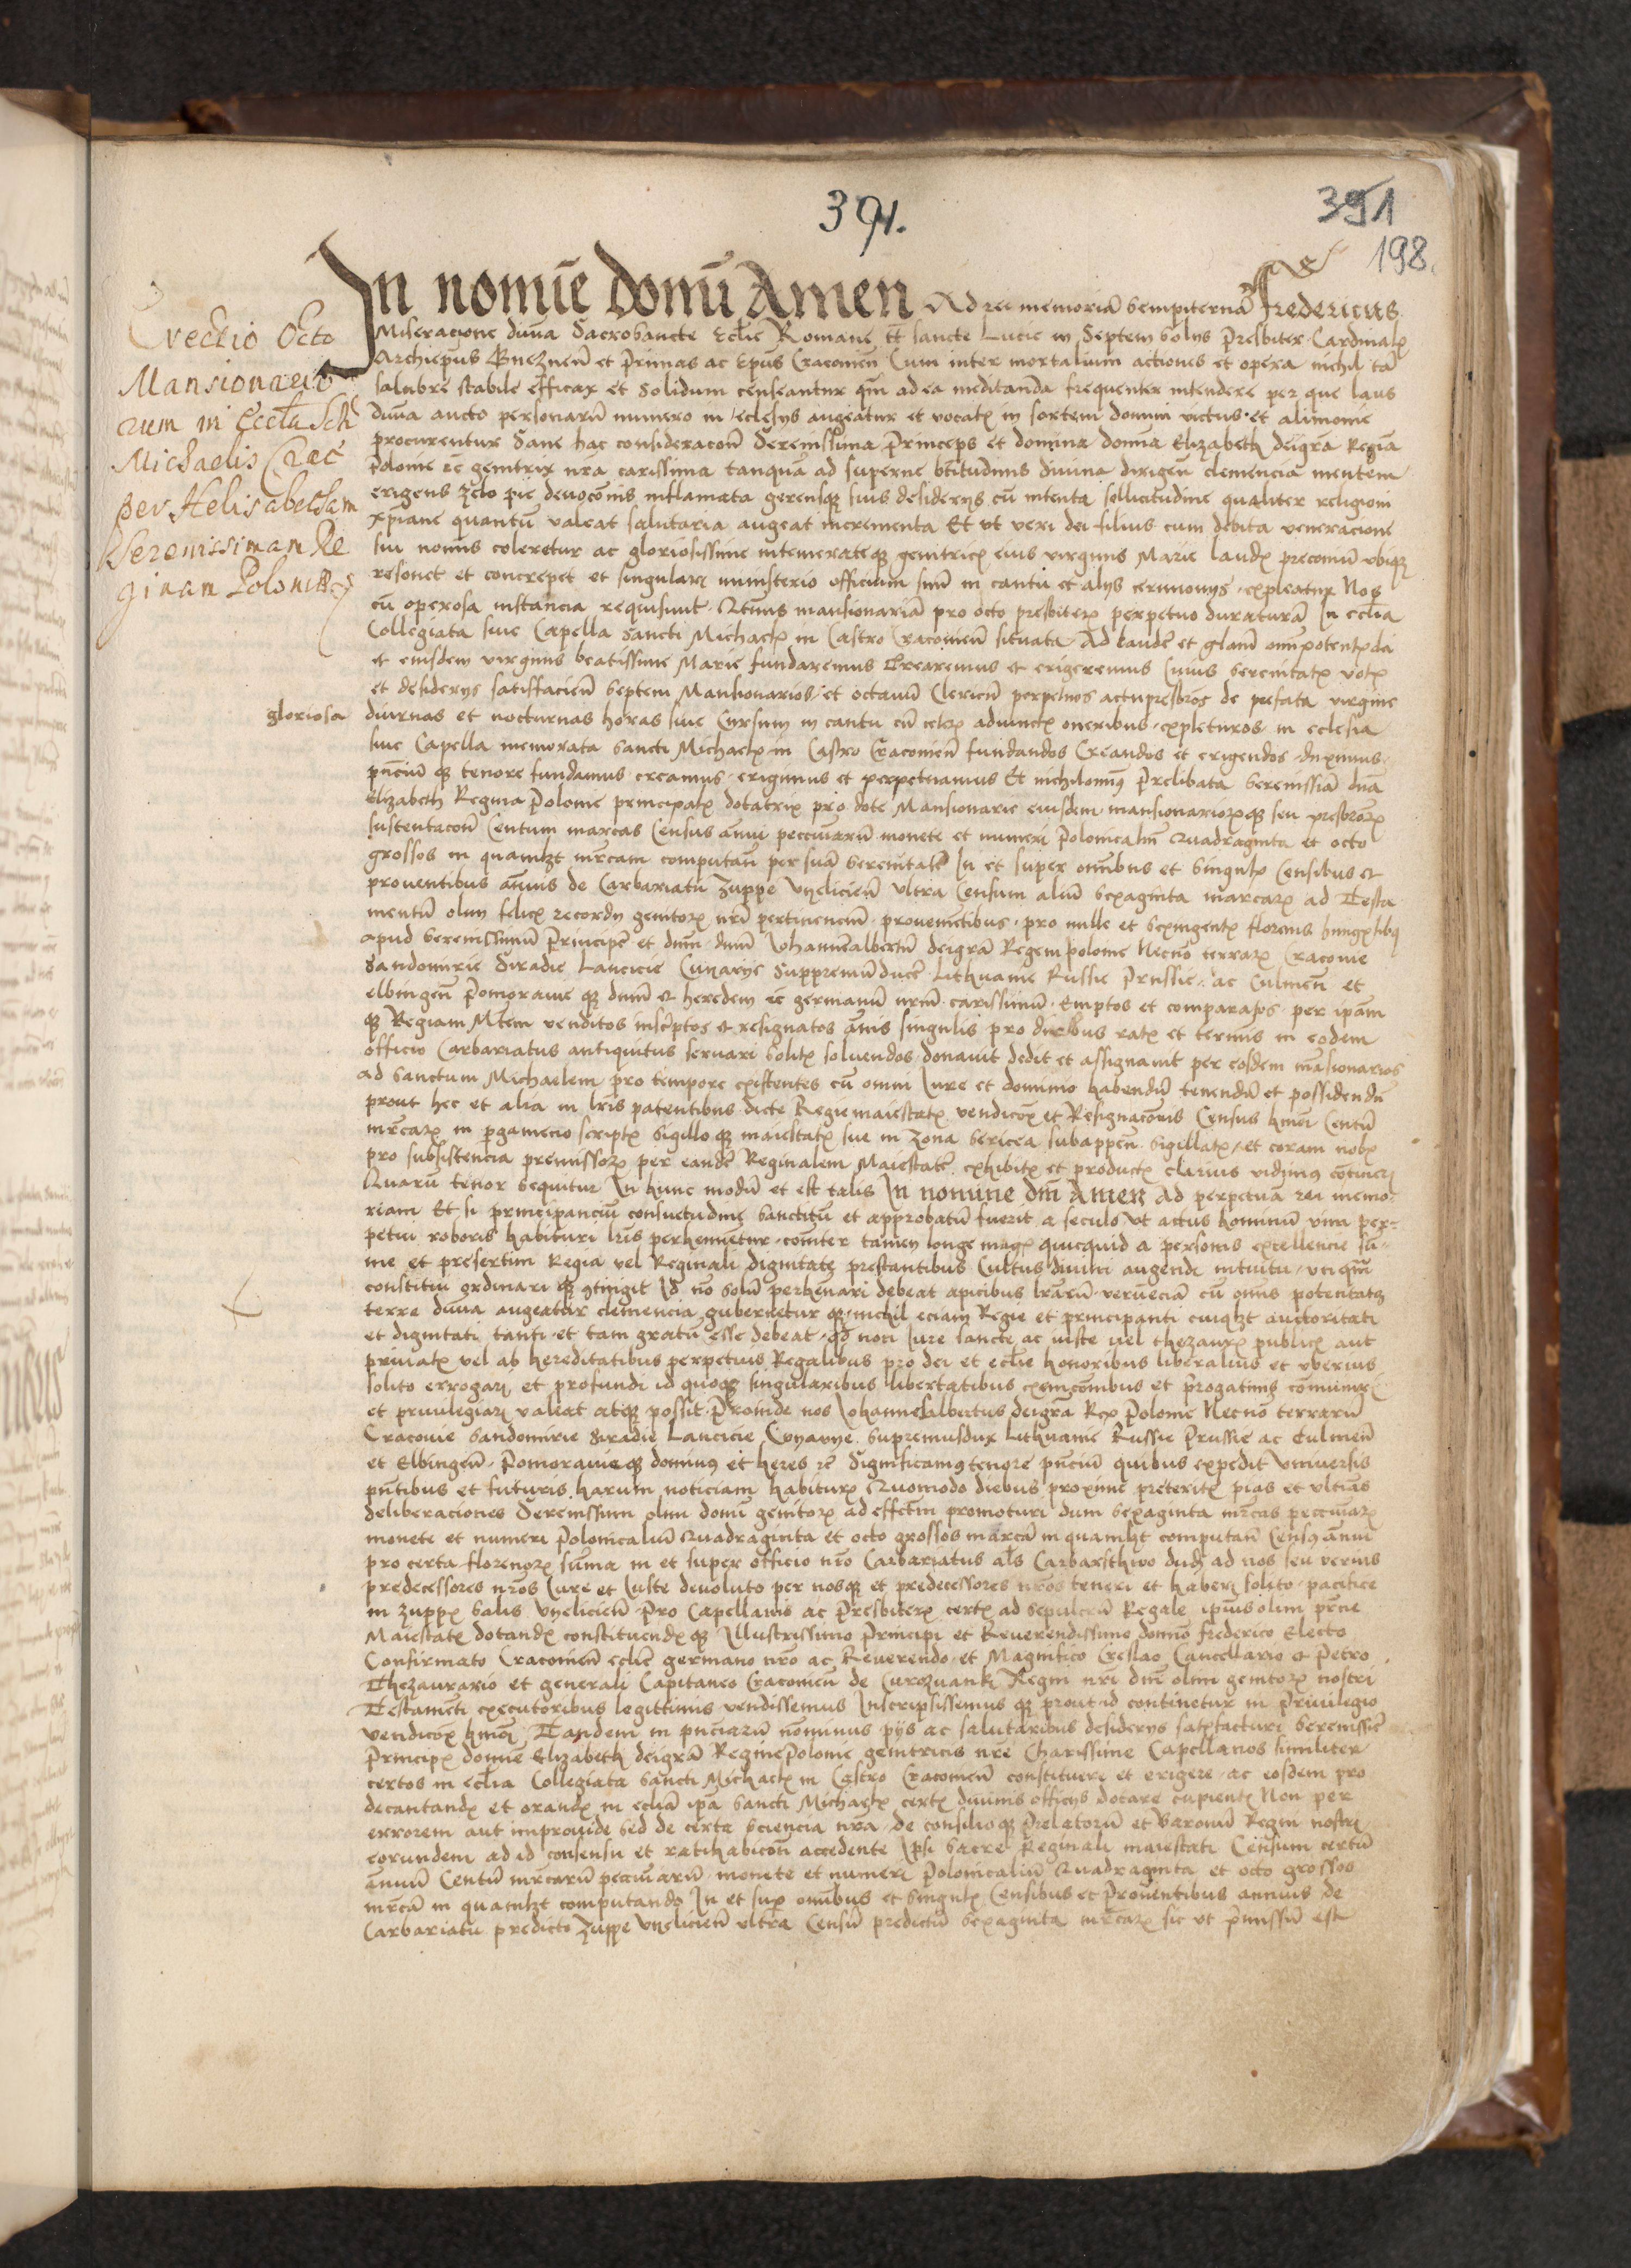 391.
391
198.
Erectio Octo
Mansionario
rum in Eccla Sct
Michaelis Crac
per Helisabetham
Serenissimam Re
ginam Poloniae
gloriosa
In nomīe domī Amen Ad rei memoriā sempiternā Fredericus
Miseracione diuīa Sacrosancte Eclie Romane tt Sancte Lucie in Septem solys Presbiter Cardinalis
Archiepūs Gneznen et Primas ac Epūs Cracouien Cum inter mortalium actiones et opera nichil tā
salubre stabile efficax et solidum censeantur qm ad ea meditanda frequenter intendere per que laus
diuīa aucto personarū numero in eclesys augeatur et vocatis in sortem domini victus et alimonie
procurentur Sane hac consideracōe Serenissima Princeps et domina domīa Elizabeth deigrā Regīa
Polonie ec genitrix nrā carissima tanquā ad superne btitudinis diuina dirigen clemencia mentem
erigens zelo pie deuocōnis inflamata gerensqꝫ suis desiderys cū intenta sollicitudine qualiter religioni
xpiane quantū valeat salutaria augeat incrementa Et vt veri dei filius cum debita veneracione
sui nomīs coleretur ac gloriosissime intemerateqꝫ genitricis eius virginis Marie laudis preconiū vbiqꝫ
resonet et concrepet et singulari ministerio officium sinū in cantu et alys cerimonys expleatur Nos
cū operosa instancia requisiuit Qtinus mansionariā pro octo presbiteris perpetuo duraturā In eclia
Collegiata siue Capella Sancti Michaelis in Castro Cracouien situata Ad laudē et gliam omīpotentis dei
et eiusdem virginis beatissime Marie fundaremus Crearemus et erigeremus Cuius serenitatis votis
et desiderys satisfacien septem Mansionarios et octauū Clericū perpetuos actupresbros de prefata virgine
diurnas et nocturnas horas siue Cursum in cantu cū ceteris adiunctis oneribus expleturos in eclesia
siue Capella memorata Sancti Michaelis in Castro Cracouien fundandos Creandos et erigendos duximus
pnciūqꝫ tenore fundamus creamus erigimus et perpetuamus Et nichilominꝰ Prelibata serenissiā dnā
Elizabeth Regina Polonie principalis dotatrix pro dote Mansionarie eiusdem mansionariorūqꝫ seu presbrorū
sustentacōe Centum marcas Census annui pecuniarū monete et numeri Polonicalm Quadraginta et octo
grossos in quamlzt mrcam computan per suā serenitatē In et super omībus et singulis Censibus et
prouentibus annuis de Carbariatu Zuppe Vyeliciēn vltra Censum aliū sexaginta marcarū ad Testa
mentū olim felicis recordy genitoris nrī pertinenciū prouenietibus pro mille et sexingentis florenis hungricalibꝰ
apud serenissimū Principē et dnm dnm Iohannēalbertū deigrā Regem polonie Necno terrarū Cracouie
Sandomirie Siradie Lancicie Cuyauye Suppremūducē Lithuanie Russie Prussie ac Culmen et
elbingen Pomoranie qꝫ dnm et heredem ec germanū nrm carissimū Emptos et comparatos per ipam
qꝫ Regiam Mtem venditos inscriptos et resignatos annis singulis pro duobus ratis et terminis in eodem
officio Carbariatus antiquitus seruari solitis soluendos donauit dedit et assignauit per eosdem māsionarios
ad Sanctum Michaelem pro tempore existentes cū omni Iure et dominio habendū tenendū et possidendū
prout hec et alia in lris patentibus dicte Regie maiestatis vendicōis et Resignacōnis Census hmōi Centū
mrcarū in pgameno scriptis sigilloqꝫ maiestatis sue in Zona sericea subappen sigillatis et coram nobis
pro subsistencia premissorū per eandē Reginalem Maiestatē exhibitis et productis clarius vidimꝰ cōtineri
Quarū tenor sequitur In hunc modū et est talis In nomine dm Amen Ad perpetuā rei memo
riam Et si principanciū consuetudine sanctitū et approbatū fuerit a seculo vt actus hominū vim per
petui roboris habituri lris perhennentur comter tamen longe magis quicquid a personis excellencie sū
me et presertim Regia vel Reginali dignitate prestantibus Cultus diuini augendi intuitu vnqm
constitui ordinari qꝫ ꝯtingit Id no solū perhennari debeat apicibus lrarū verūeciā cū omīs potentatꝫ
terre diuīa augeatur clemencia gubernetur qꝫ nichil eciam Regie et principanti cuiqlzt auctoritati
et dignitati tanti et tam gratū esse debeat qd non Iure sancte ac iuste vel thezauris publicis aut
priuatis vel ab hereditatibus perpetuis Regalibus pro dei et eclie honoribus liberalius et vberius
solito errogari et profundi id quoqꝫ singularibus libertatibus exempcōnibus et progatiuis cōmuniri
et priuilegiari valeat atqꝫ possit Proinde nos Iohannesalbertus deigrā Rex Polonie Necno terrarū
Cracouie Sandomirie Siradie Lancicie Cuyauye Supremusdux Lithuanie Russie Prussie ac Culmen
et Elbingen Pomoranieqꝫ dominꝰ et heres ec Significamꝰ tenore pnciū quibus expedit vniuersis
pntibus et futuris harum noticiam habituris Quomodo diebus proxime preteritis pias et vltīas
deliberaciones Serenissimi olim domī genitoris ad effectm promoturi dum sexaginta mrcas pecuniarū
monete et numeri Polonicaliū Quadraginta et octo grossos marcā in quamlzt computan Censꝰ annui
pro certa florenorū sūma in et super officio nro Carbariatus als Carbarsthwo dudū ad nos seu verius
predecessores nros Iure et Iuste deuoluto per nosqꝫ et predecessores nros teneri et haberi solito pacifice
in zuppis salis Vyelicien Pro Capellanis ac Presbiteris certis ad sepulcrū Regale ipius olim prcie
Maiestatis dotandis constituendisqꝫ Illustrissimo Principi et Reuerendissimo domno Frederico Electo
Confirmato Cracouien eclie germano nro ac Reuerendo et Magnifico Creslao Cancellario et Petro
Thezaurario et generali Capitaneo Cracouien de Curozwanki Regni nrī dnī olim genitoris nostri
Testamenti executoribus legittimis vendissemus Inscripsissemus qꝫ prout id continetur in priuilegio
vendicōis hmōi Tandem in pnciarū nominus pys ac salutaribus desiderys satisfacturi serenissīe
Principis domne Elizabeth deigrā Regine Polonie genitricis nre Charissime Capellanos similiter
certos in eclia Collegiata Sancti Michaelis in Castro Cracouien constituere et erigere ac eosdem pro
decantandis et orandis in eclia ipa Sancti Michaelis certis diuinis officys dotare cupientes Non per
errorem aut improuide sed de certa sciencia nra de consilioqꝫ Prelatorū et Baronū Regni nostri
eorundem ad id consensu et ratihabicōe accedente Ipsi sacre Reginali maiestati Censum certū
annuū Centū mrcarū pecuniarū monete et numeri Polonicaliū Quadraginta et octo grossos
mrcā in quamlzt computando In et sup omībus et singulis Censibus et Prouentibus annuis de
Carbariatu predicto Zuppe Vyelicien vltra Censū predictū sexaginta mrcarū sic vt pmissū est